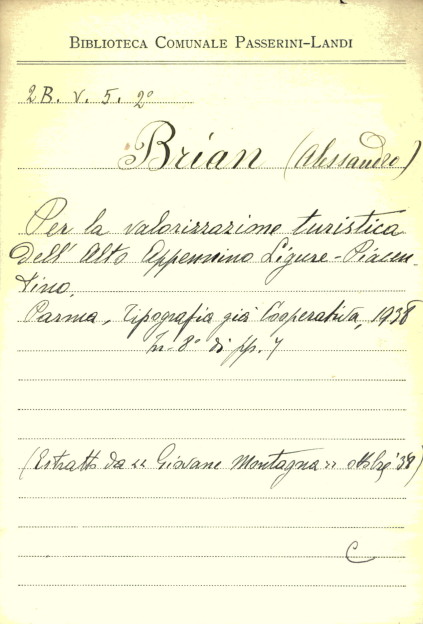 BIBLIOTECA COMUNALE PASSERINI-LANDI
2B. V. 5. 2°
Brian (Alessandro)
Per la valorizzazione turistica
dell' Alto Appennino Ligure-Piacen-
tino.
Parma, Tipografia già Cooperativa, 1938
In-8° di pp. 7
(Estratto da "Giovane Montagna" ottobre '38)
C